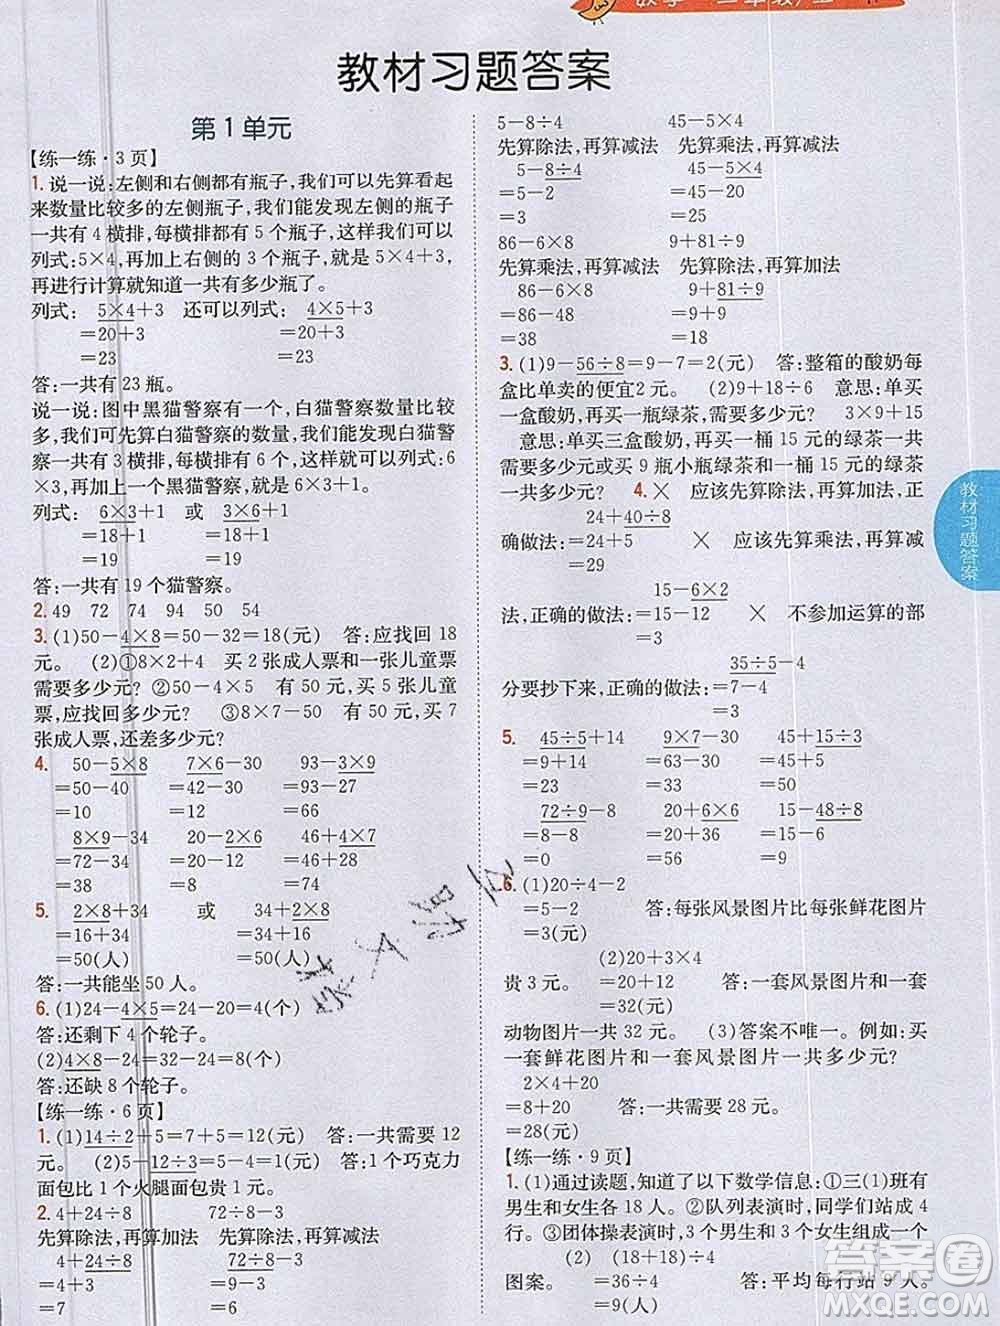 教材习题答案
第1单元
【练一练·3页】
1. 说一说:左侧和右侧都有瓶子,我们可以先算看起
来数量比较多的左侧瓶子,我们能发现左侧的瓶子
一共有4横排,每横排都有5个瓶子,这样我们可以
列式:5×4,再加上右侧的3个瓶子,就是5×4+3,
再进行计算就知道一共有多少瓶了。
列式: 5×4+3 还可以列式: 4×5+3
=20+3 =20+3
=23 =23
答:一共有23瓶。
说一说:图中黑猫警察有一个,白猫警察数量比较多
我们可先算白猫警察的数量,我们能发现白猫警
察一共有3横排,每横排有6个,这样可以列式:6
×3,再加上一个黑猫警察,就是6×3+1
列式: 6×3+1 或 3×6+1
=18+1 =18+1
=19 =19
答:一共有19个猫警察。
2. 49 72 74 94 20 20
3. (1)50-4×8=50-32=18(元) 答:应找回18
元。 (2)①8×2+4 买2张成人票和一张儿童票
需要多少元? ②50-4×5 有50元,买5张儿童
票,应找回多少元? ③8×7-50 有50元,买7
张成人票,还差多少元?
4. 50-5×8 7×6-30 93-3×9
=50-40 =42-30 =93-27
=10 =12 =66
8×9-34 20-2×6 46+4×7
=72-34 =20-12 =46+28
=38 =8 =74
5. 2×8+34 或 34+2×8
=16+34 =34+16
=50(人) =50(人)
答:一共能坐50人。
6. (1)24-4×5=24-20=4(个)
答:还剩下4个轮子。
(2)4×8-24=32-24=8(个)
答:还缺8个轮子。
【练一练·6页】
1. (1)14÷2+5=7+5=12(元) 答:一共需要12
元。 (2)5-12÷3=5-4=1(元) 答:1个巧克力
面包比1个火腿面包贵1元。
2. 4+24÷8 72÷8-3
先算除法,再算加法 先算除法,再算减法
4+24÷8 72÷8-3
=4+3 =9-3
=7 =6
5-8÷4 45-5×4
先算除法,再算减法 先算乘法,再算减法
5-8÷4 45-5×4
=5-2 =45-20
=3 =25
86-6×8 9+81÷9
先算乘法,再算减法 先算除法,再算加法
86-6×8 9+81÷9
=86-48 =9+9
=38 =18
3. (1)9-56÷8=9-7=2(元) 答:整箱的酸奶每
盒比单卖的便宜2元。 (2)9+18÷6 意思:单买
一盒酸奶,再买一瓶绿茶,需要多少元? 3×9+15
意思:单买三盒酸奶,再买一桶15元的绿茶一共
需要多少元?或买9瓶小瓶绿茶和一桶15元的绿茶
一共多少元? 4. × 应该先算除法,再算加法,正
24+40÷8
确做法:=24+5 × 应该先算乘法,再算减
=29
15-6×2
法,正确的做法:=15-12 × 不参加运算的部
=3
35÷5-4
分要抄下来,正确的做法:=7-4
=3
5. 45÷5+14 9×7-30 15-15÷3
=9+14 =63-30 =15-5
=23 =33 =10
72÷9-8 20+6×6 15-2×3
=8-8 =20+36 =15-6
=0 =56 =9
6. (1)20÷4-2
=5-2 答:每张风景图片比每张鲜花图片
=3(元) (2)20+4×3
贵3元。 =20+12 答:一套风景图片和一套
=32(元)
动物图片一共32元。 (3)答案不唯一。例如:买
一套鲜花图片和一套风景图片一共多少元?
2×4+20
=8+20 答:一共需要28元。
=28(元)
【练一练·9页】
1. (1)通过读题,知道了以下数学信息:①三(1)班有
男生和女生各18人。②队列表演时,同学们站成4
行。③团体操表演时,3个男生和3个女生组成一个
(2) (18+18)÷4
图案。 =36÷4 答:平均每行站9人。
=9(人)
教材习题答案
答案圈
MXQE.COM